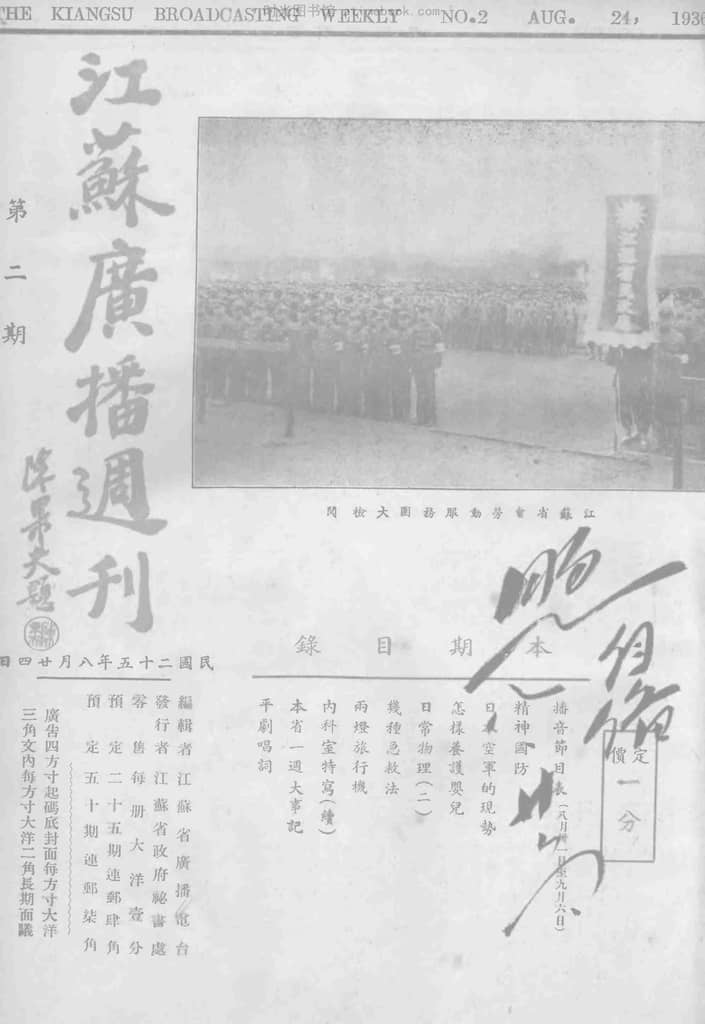 THE KIANGSU BROADCASTING WEEKLY NO.2 AUG. 24, 1936
江蘇廣播週刊
第二期
陳果夫題
江蘇省童勞動服務團大檢閱
民國二十五年八月廿四日
本期目錄
播音節目表(八月卅一日至九月六日)
精神國防
日本空軍的現勢
怎樣養護嬰兒
日常物理(二)
幾種急救法
兩燈旅行機
內科室特寫(續)
本省一週大事記
平劇唱詞
定價一分
編輯者江蘇省廣播電台
發行者江蘇省政府祕書處
零售每册大洋壹分
預定二十五期連郵肆角
預定五十期連郵柒角
廣告四方寸起碼底封面每方寸大洋
三角文內每方寸大洋二角長期面議